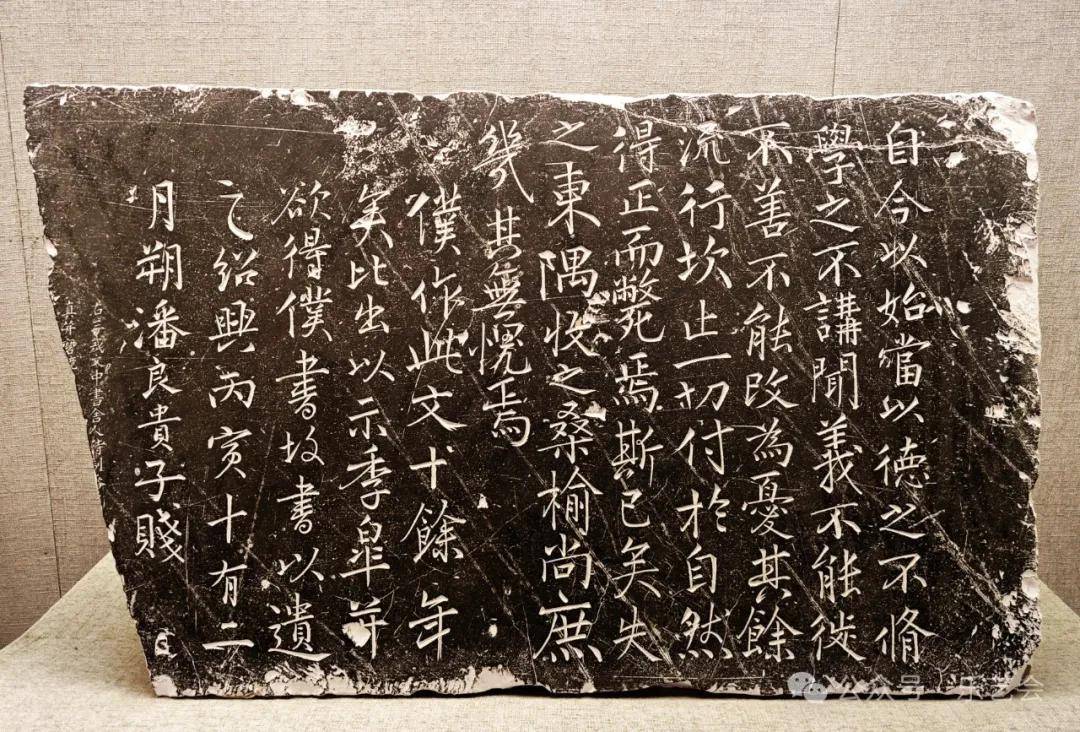 自今以始當以德之不脩
學之不講聞義不能徙
不善不能改為憂其餘
流行坎止一切付於自然
得正而斃焉斯已矣失
之東隅收之桑榆尚庶
幾其無愧焉
僕作此文十餘年
矣比出以示季皐并
欲得僕書故書以遺
之紹興丙寅十有二
月朔潘良貴子賤
公众号